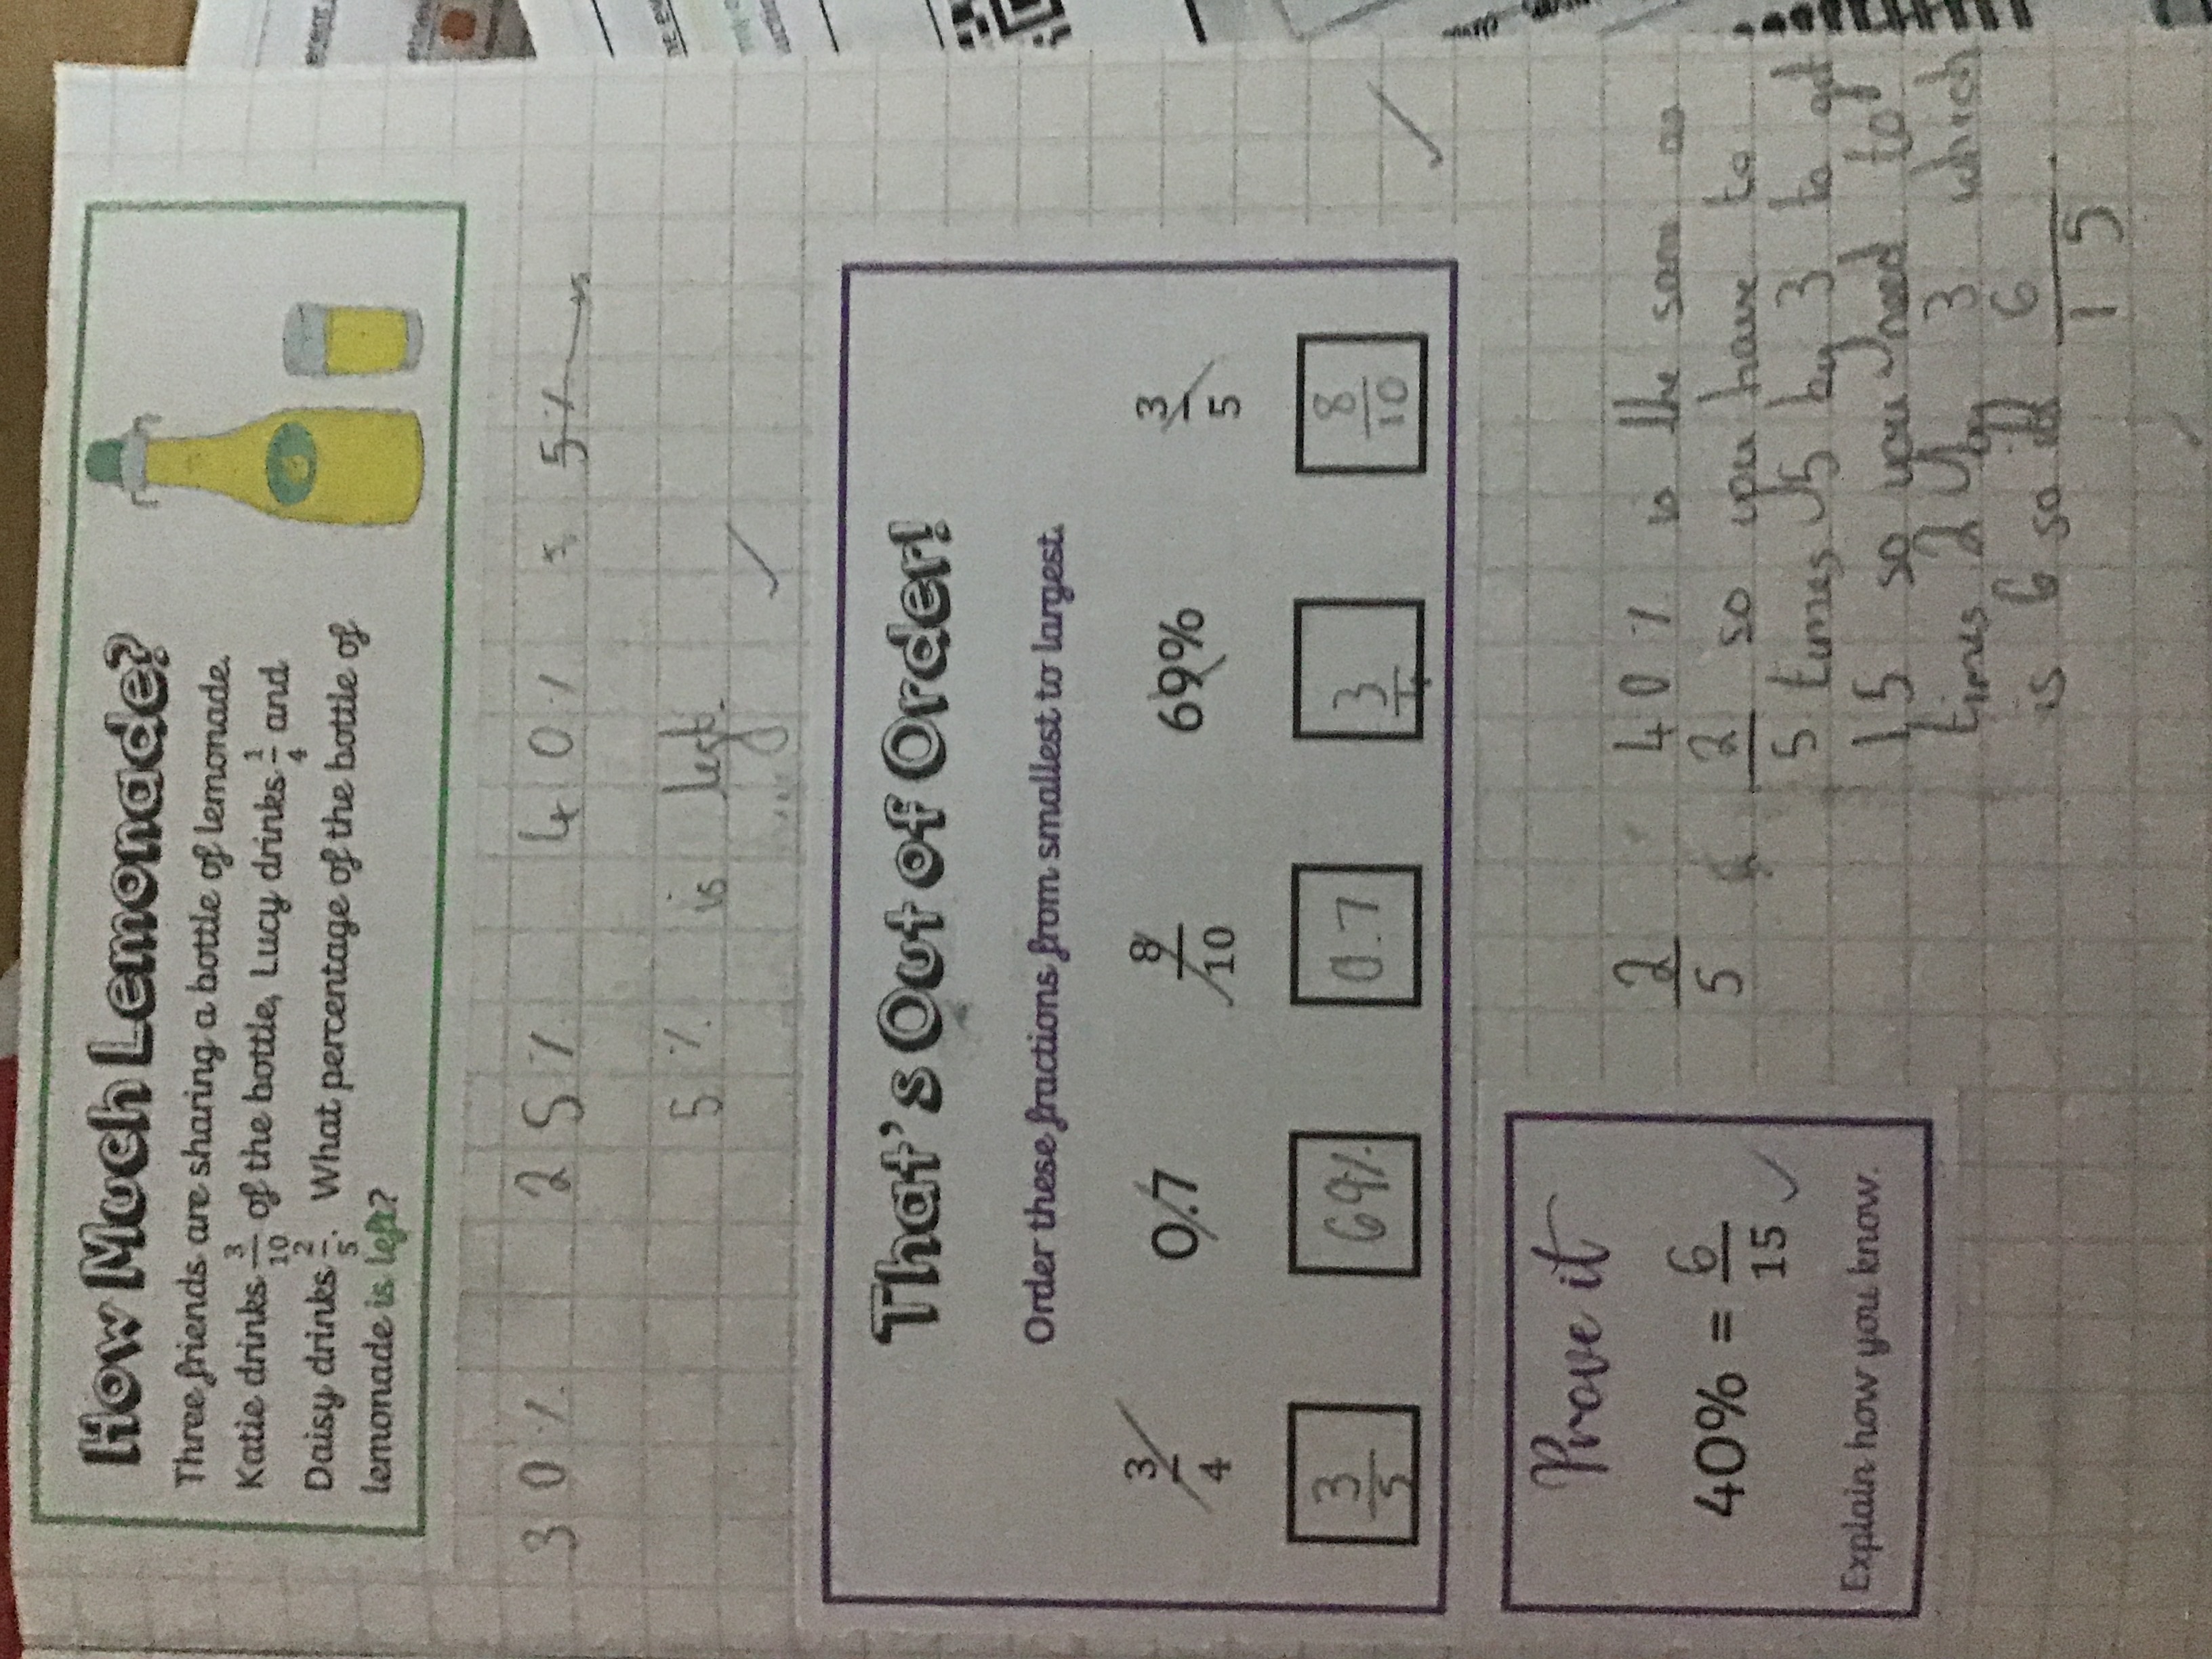 How Much Lemonade?
Three friends are sharing a bottle of lemonade.
Katie drinks 3/10 of the bottle, Lucy drinks 1/4 and
Daisy drinks 2/5. What percentage of the bottle of
lemonade is left?
30% 25% 40% 5%
5% is left.
That's Out of Order!
Order these fractions from smallest to largest.
3/4 0.7 8/10 69% 3/5
3/5 69% 0.7 3/4 8/10
Prove it
40% = 6/15
Explain how you know.
2/5 40% is the same as
2/5 so you have to
times 5 by 3 to get
15 so you need to
times 2 by 3 which
is 6 so 6/15.